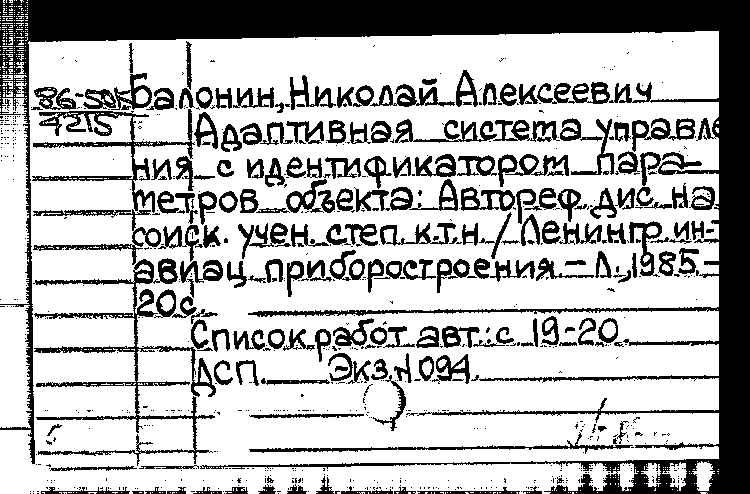 86-50к Балонин, Николай Алексеевич
4215
Адаптивная система управле
ния с идентификатором пара-
метров объекта: Автореф. дис. на
соиск. учен. степ. к.т.н. / Ленингр. ин-т
авиац. приборостроения. – Л., 1985 –
20с.
Список работ авт.: с 19-20.
ДСП. Экз. N 094.